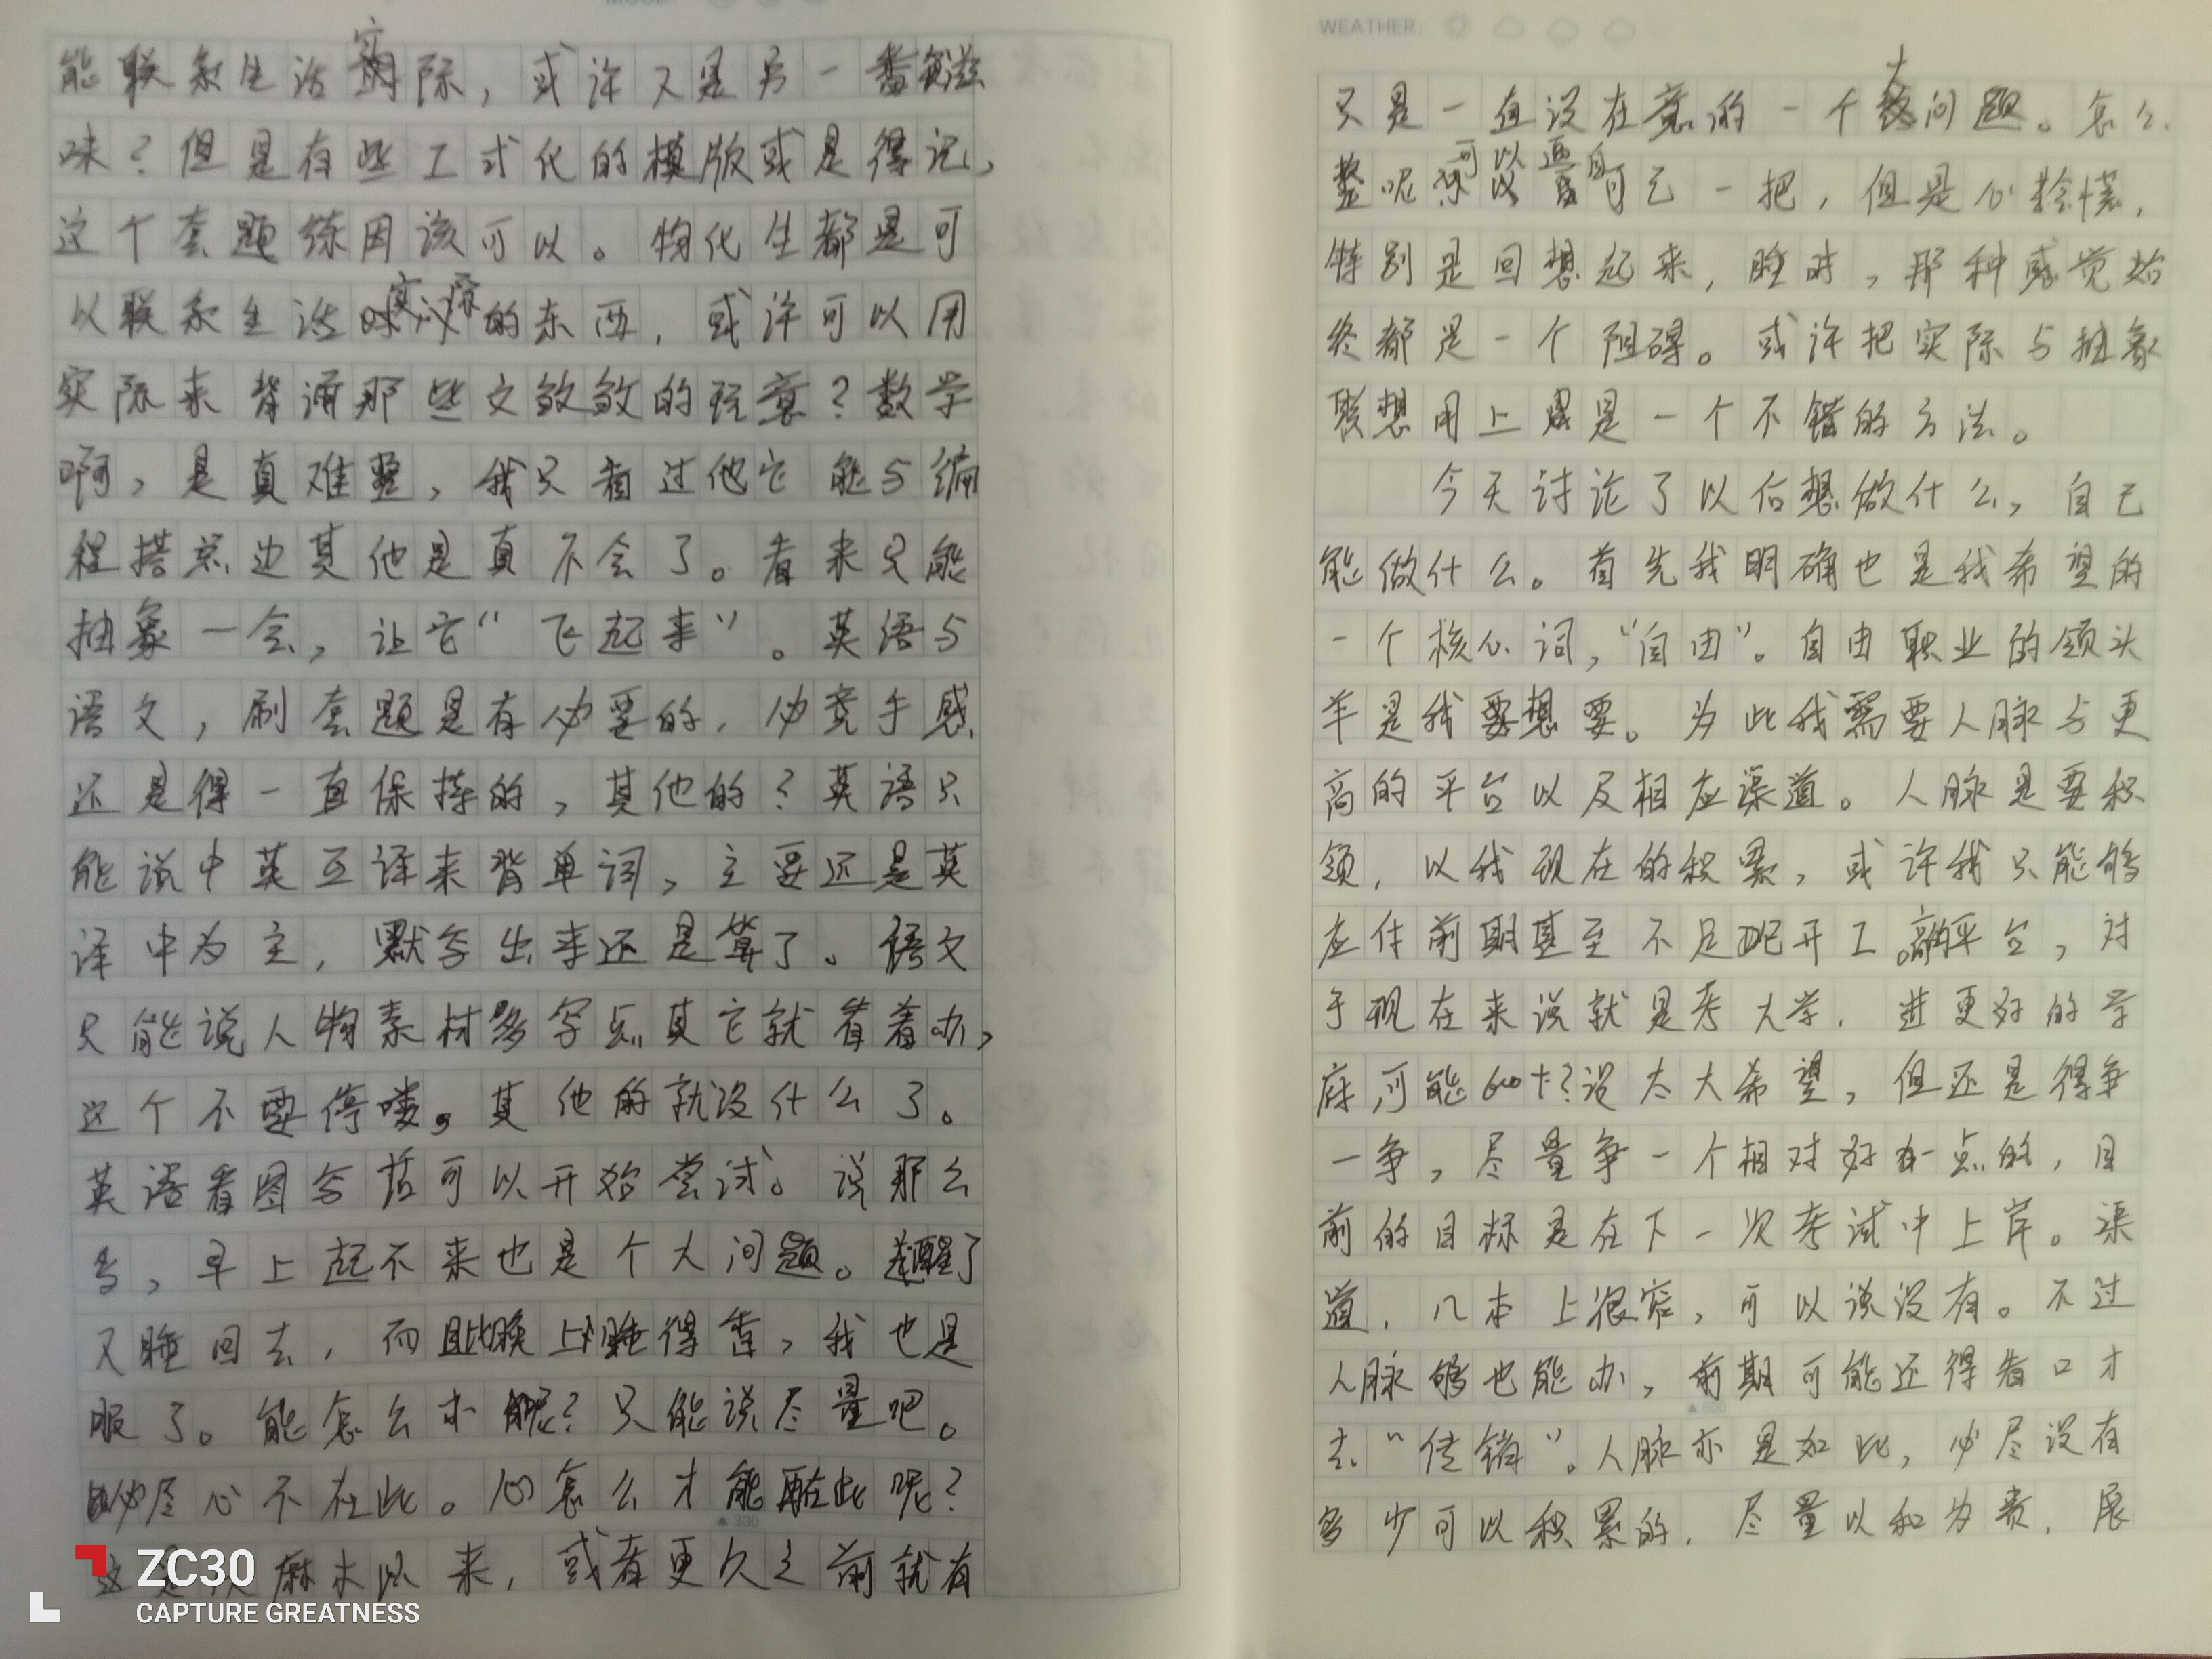 MOOD:
能联系生活实际，或许又是另一番滋
味？但是有些工式化的模版或是得记，
这个套题练因该可以。物化生都是可
以联系生活实际的东西，或许可以用
实际来背诵那些文邹邹的玩意？数学
啊，是真难整，我只看过他它能与编
程搭点边其他是真不会了。看来只能
抽象一会，让它“飞起来”。英语与
语文，刷套题是有必要的，必竟手感
还是得一直保持的，其他的？英语只
能说中英互译来背单词，主要还是英
译中为主，默写出来还是算了。语文
只能说人物素材多写点其它就看着办，
这个不要停喽，其他的就没什么了。
英语看图写话可以开始尝试。说那么
多，早上起不来也是个大问题。醒了
又睡回去，而且比晚上睡得香，我也是
服了。能怎么办呢？只能说尽量吧。
必尽心不在此。心怎么才能在此呢？
▲300
这是 麻木以来，或者更久之前就有
ZC30
CAPTURE GREATNESS
WEATHER:
只是一直没在意的一个大问题。怎么
整呢 可以逼自己一把，但是心持懐，
特别是回想起来，睡时，那种感觉始
终都是一个阻碍。或许把实际与抽象
联想用上是一个不错的方法。
今天讨论了以后想做什么，自己
能做什么。首先我明确也是我希望的
一个核心词，“自由”。自由职业的领头
羊是我想要。为此我需要人脉与更
高的平台以及相应渠道。人脉是要积
领，以我现在的积累，或许我只能够
应付前期甚至不足以开工。高的平台，对
于现在来说就是考大学，进更好的学
府，可能600+？没太大希望，但还是得争
一争，尽量争一个相对好一点的，目
前的目标是在下一次考试中上岸。渠
道，几本上很窄，可以说没有。不过
人脉够也能办，前期可能还得看口才
▲600
去“传销”。人脉亦是如此，必尽没有
多少可以积累的，尽量以和为贵，展